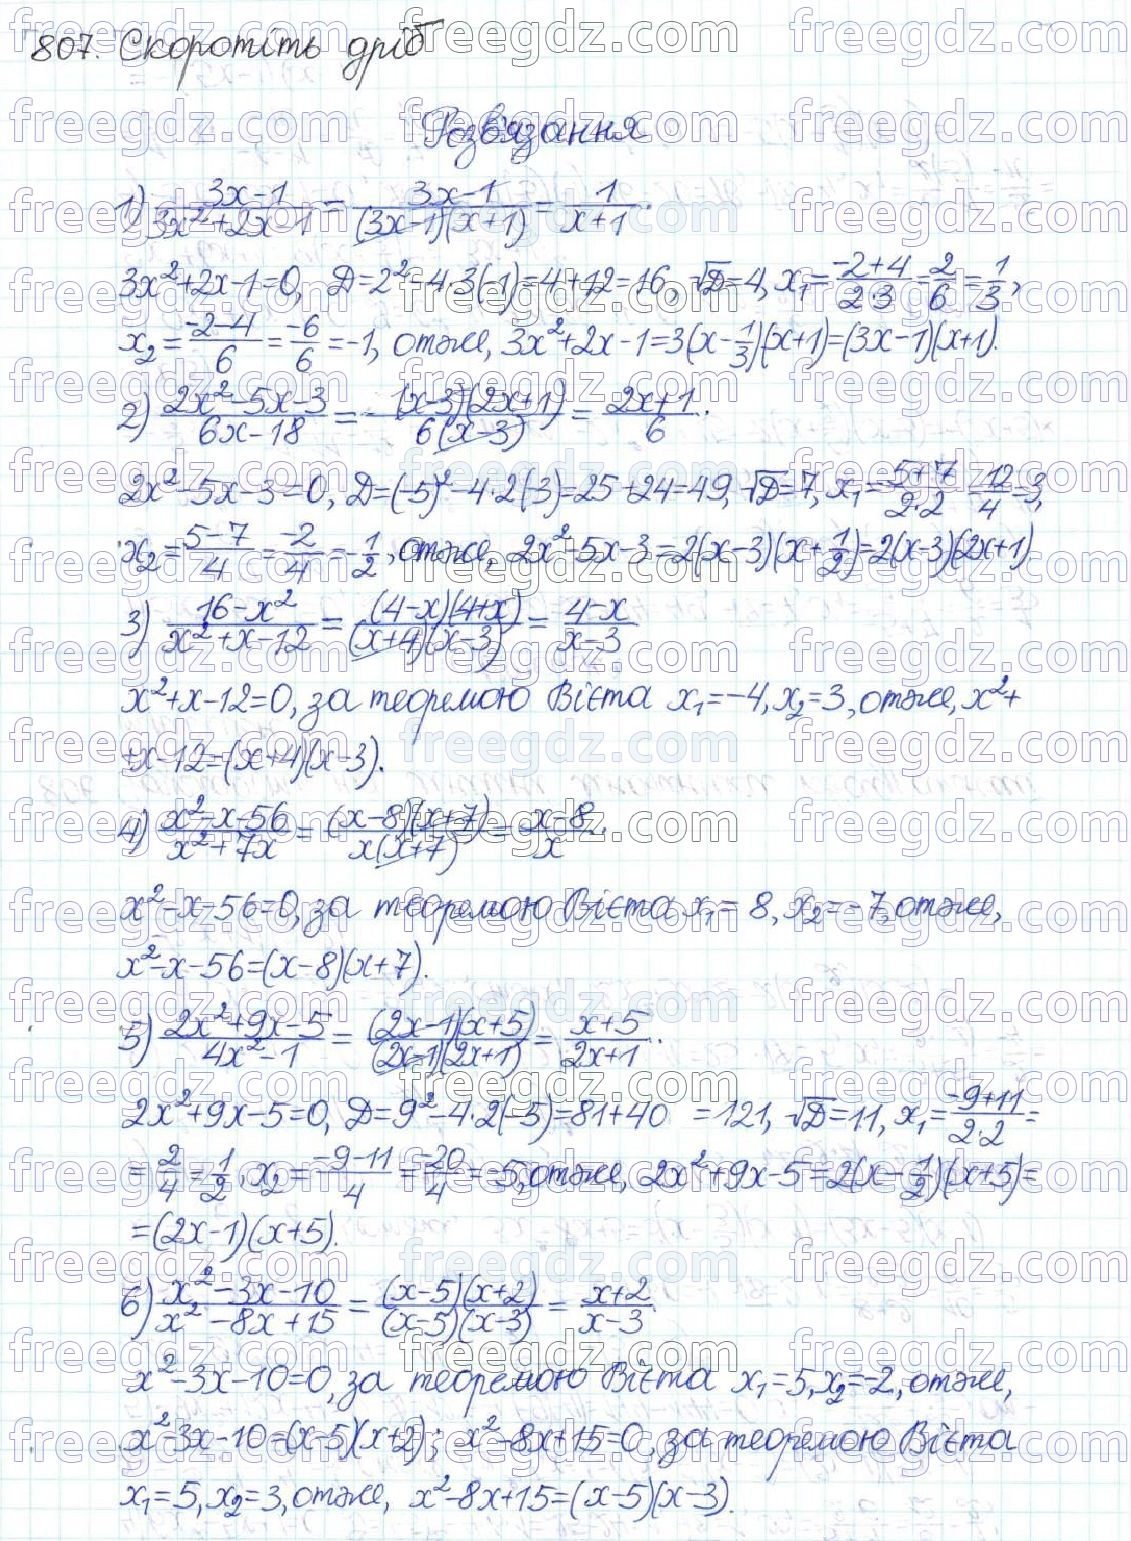 807. Скоротіть дріб
Розв'язання
1) (3x-1)/(3x²+2x-1) = (3x-1)/((3x-1)(x+1)) = 1/(x+1).
3x²+2x-1=0, D=2²-4·3(-1)=4+12=16, √D=4, x₁=(-2+4)/(2·3)=2/6=1/3,
x₂=(-2-4)/6=-6/6=-1, отже, 3x²+2x-1=3(x-1/3)(x+1)=(3x-1)(x+1).
2) (2x²-5x-3)/(6x-18) = ((x-3)(2x+1))/(6(x-3)) = (2x+1)/6.
2x²-5x-3=0, D=(-5)²-4·2(-3)=25+24=49, √D=7, x₁=(5+7)/(2·2)=12/4=3,
x₂=(5-7)/4=-2/4=-1/2, отже, 2x²-5x-3=2(x-3)(x+1/2)=2(x-3)(2x+1)
3) (16-x²)/(x²+x-12) = ((4-x)(4+x))/((x+4)(x-3)) = (4-x)/(x-3).
x²+x-12=0, за теоремою Вієта x₁=-4, x₂=3, отже, x²+
+x-12=(x+4)(x-3).
4) (x²-x-56)/(x²+7x) = ((x-8)(x+7))/(x(x+7)) = (x-8)/x.
x²-x-56=0, за теоремою Вієта x₁=8, x₂=-7, отже,
x²-x-56=(x-8)(x+7).
5) (2x²+9x-5)/(4x²-1) = ((2x-1)(x+5))/((2x-1)(2x+1)) = (x+5)/(2x+1).
2x²+9x-5=0, D=9²-4·2(-5)=81+40 =121, √D=11, x₁=(-9+11)/(2·2)=
=2/4=1/2, x₂=(-9-11)/4=-20/4=-5, отже, 2x²+9x-5=2(x-1/2)(x+5)=
=(2x-1)(x+5).
6) (x²-3x-10)/(x²-8x+15) = ((x-5)(x+2))/((x-5)(x-3)) = (x+2)/(x-3).
x²-3x-10=0, за теоремою Вієта x₁=5, x₂=-2, отже,
x²-3x-10=(x-5)(x+2); x²-8x+15=0, за теоремою Вієта
x₁=5, x₂=3, отже, x²-8x+15=(x-5)(x-3).
freegdz.com